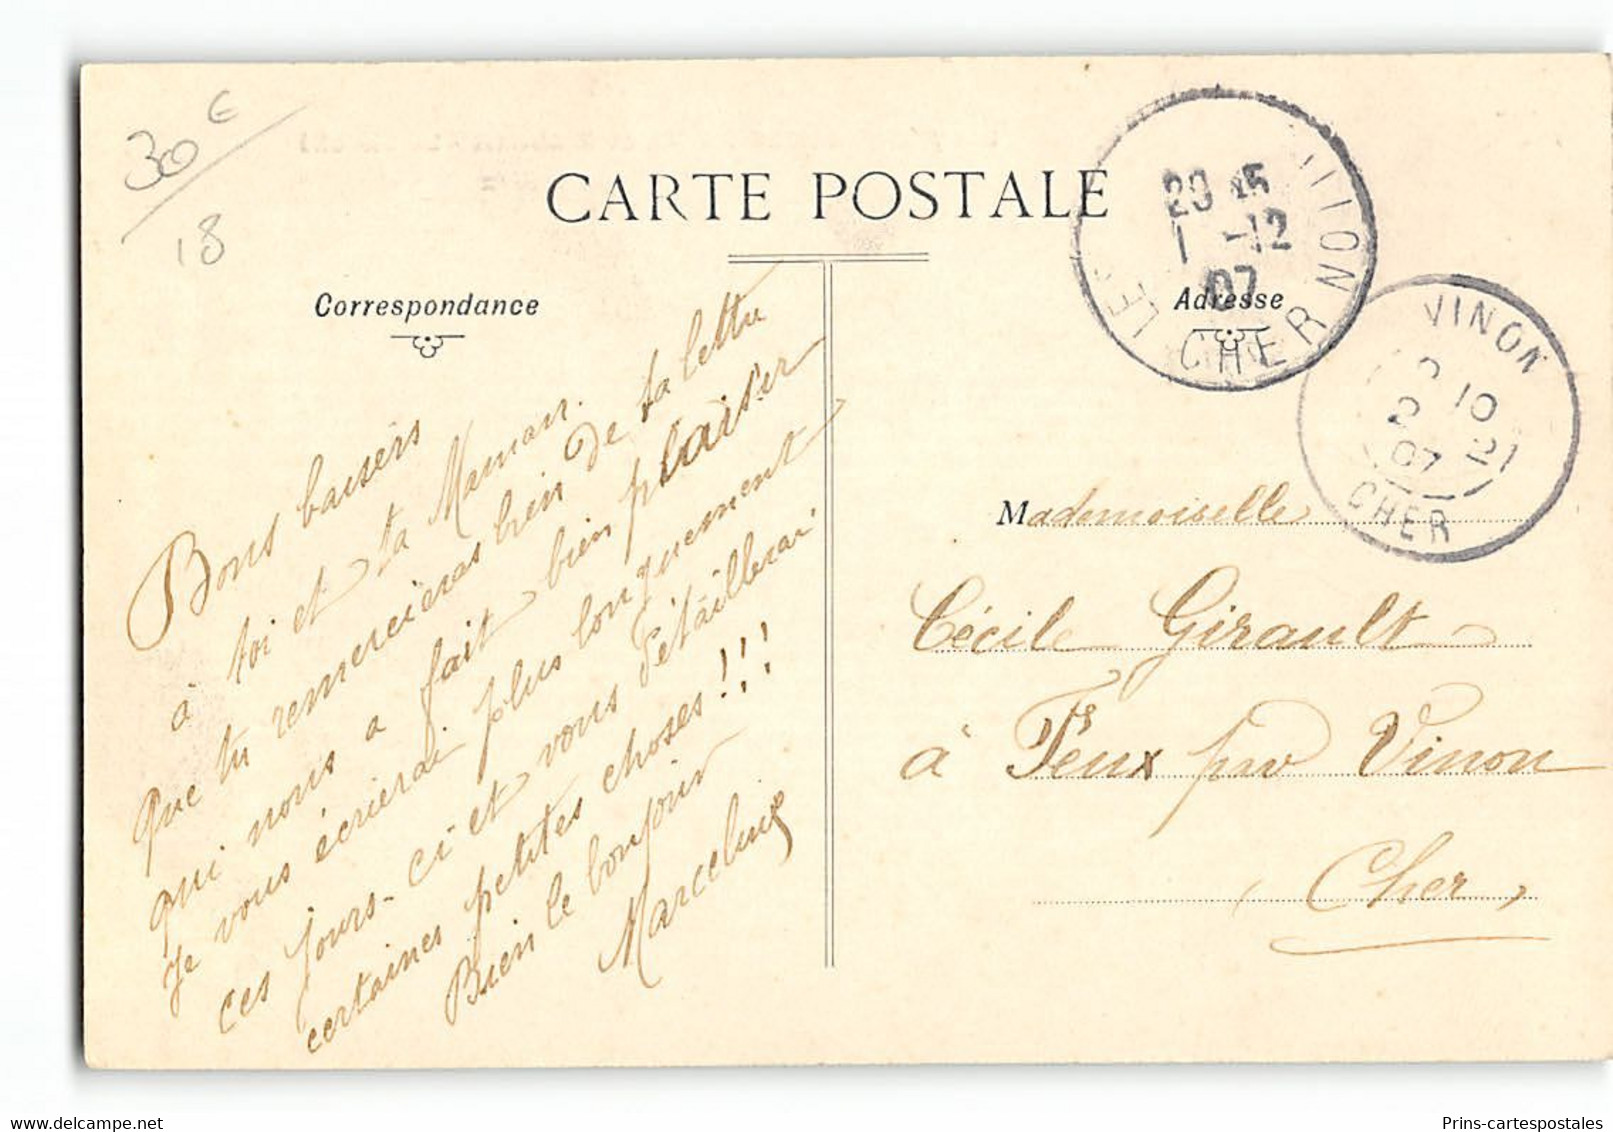 30€
18
CARTE POSTALE
Correspondance
Adresse
20 45
1 -12
07
CHER
VINON
10
2 12
07
CHER
Bons baisers
à toi et ta Maman.
Que tu remercieras bien de ta lettre
qui nous a fait bien plaisir
Je vous écrierai plus longuement
ces jours-ci et vous détaillerai
certaines petites choses!!!
Bien le bonjour
Marceline
Mademoiselle
Cécile Girault
à Feux par Vinon
Cher,
delcampe.net
Prins-cartespostales